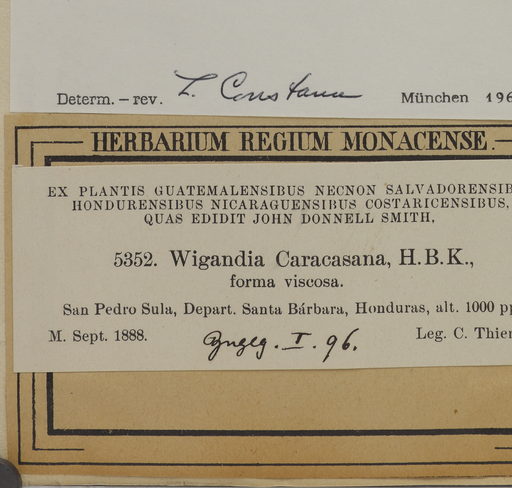 Determ. – rev. L. Constance München 196
HERBARIUM REGIUM MONACENSE.
EX PLANTIS GUATEMALENSIBUS NECNON SALVADORENSIB
HONDURENSIBUS NICARAGUENSIBUS COSTARICENSIBUS,
QUAS EDIDIT JOHN DONNELL SMITH,
5352. Wigandia Caracasana, H.B.K.,
forma viscosa.
San Pedro Sula, Depart. Santa Bárbara, Honduras, alt. 1000 pp
M. Sept. 1888. Leg. C. Thie
I. 96.